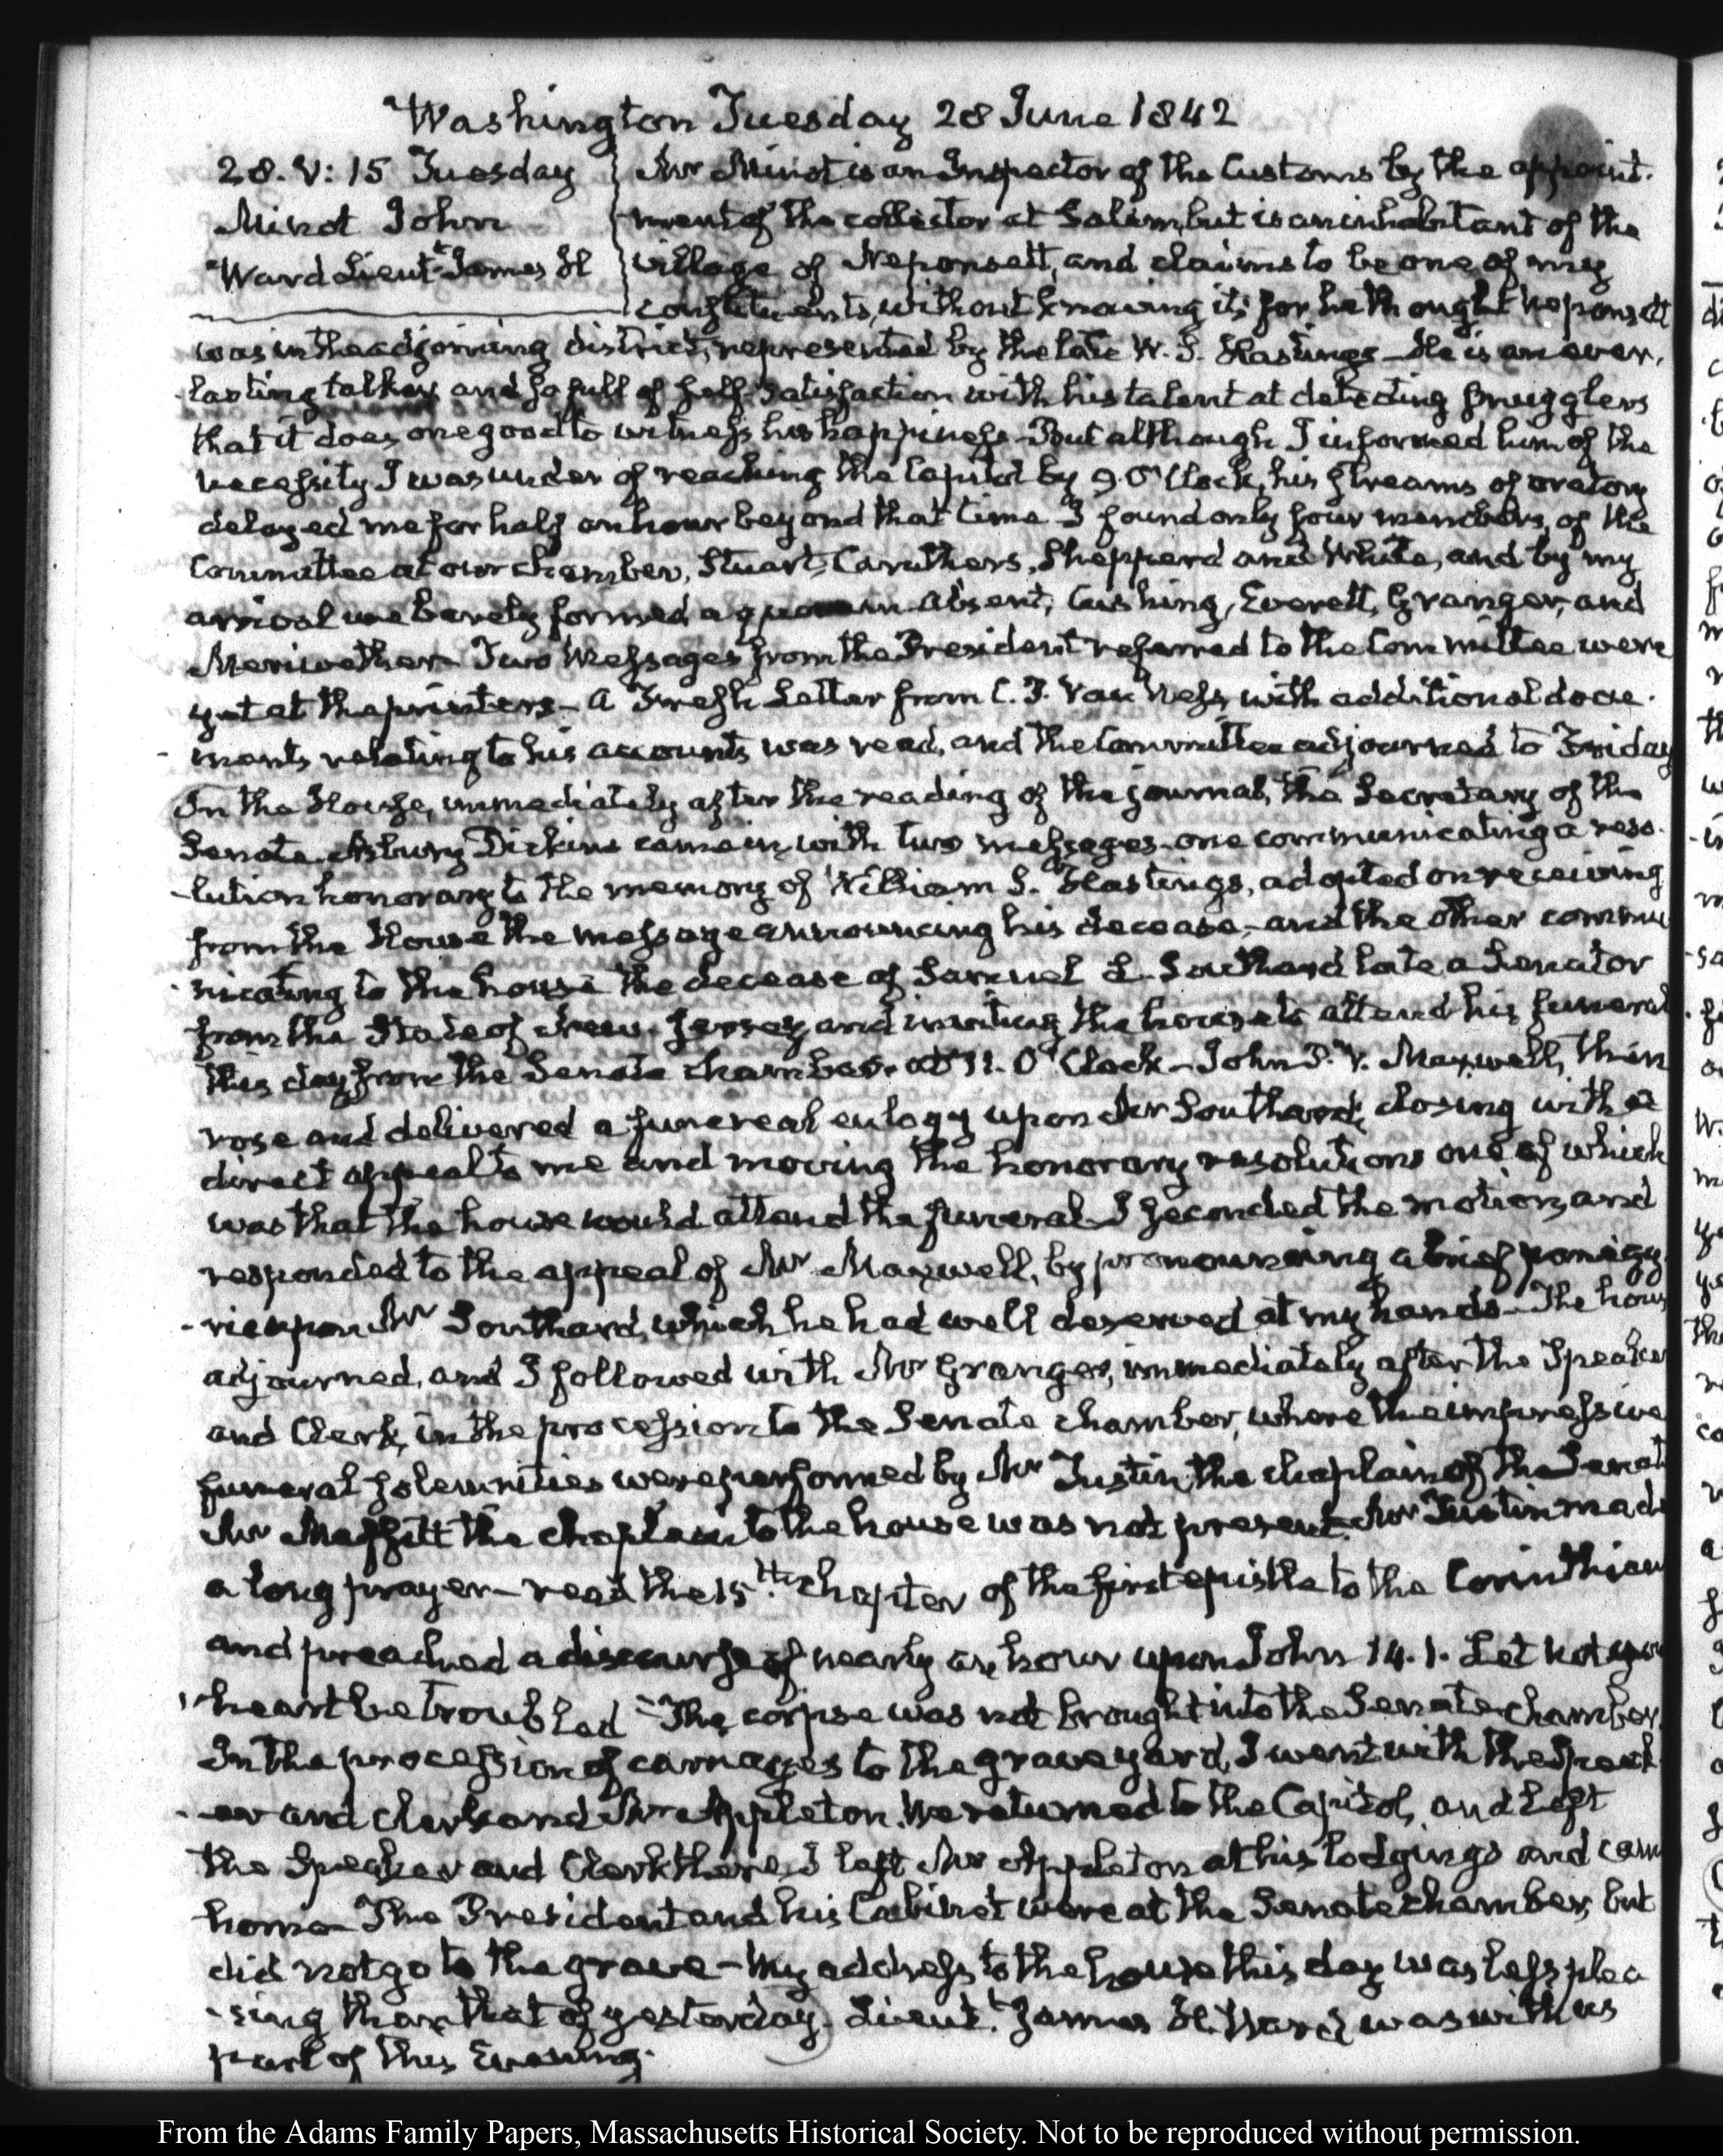 Washington Tuesday 28 June 1842
28. V: 15 Tuesday
Minot John
Ward Lieut.t James H
Mr Minot is an Inspector of the Customs by the appoint-
ment of the collector at Salem, but is an inhabitant of the
village of Neponsett, and claims to be one of my
constituents, without knowing it; for he thought Neponsett
was in the adjoining district, represented by the late W. S. Hastings – He is an ever-
-lasting talker, and so full of self-satisfaction with his talent at detecting smugglers
that it does one good to witness his happiness – But although I informed him of the
necessity I was under of reaching the Capitol by 9. O'Clock, his streams of oratory
delayed me for half an hour beyond that time – I found only four members of the
Committee at our chamber, Stuart, Caruthers, Shepperd and White, and by my
arrival we barely formed a quorum – absent, Cushing, Everett, Granger, and
Meriwether – Two Messages from the President referred to the Committee were
yet at the printers – A Fresh Letter from C. P. Van Ness, with additional docu-
-ments relating to his accounts was read, and the Committee adjourned to Friday
In the House, immediately after the reading of the journal, the Secretary of the
Senate Asbury Dickins came in, with two messages – one communicating a reso-
-lution honorary to the memory of William S. Hastings, adopted on receiving
from the House the message announcing his decease, – and the other commu-
-nicating to the house the decease of Samuel L. Southard late a Senator
from the State of New-Jersey, and inviting the house to attend his funeral
this day, from the Senate chamber at 11. O'Clock – John P. B. Maxwell, then
rose and delivered a funereal eulogy upon Mr Southard, closing with a
direct appeal to me and moving the honorary resolutions one of which
was that the house would attend the funeral – I seconded the motion, and
responded to the appeal of Mr Maxwell, by pronouncing a brief panegy-
-ric upon Mr Southard, which he had well deserved at my hands – The house
adjourned, and I followed with Mr Granger, immediately after the Speaker
and Clerk, in the procession to the Senate chamber, where the impressive
funeral solemnities were performed by Mr Tustin, the chaplain of the Senate
Mr Maffitt the chaplain to the house was not present. Mr Tustin made
a long prayer – read the 15.th chapter of the first epistle to the Corinthians
and preached a discourse of nearly an hour upon John 14. 1. Let not your
heart be troubled – The corpse was not brought into the Senate chamber
In the procession of carriages to the grave yard, I went with the Speak-
-er and clerk and Mr Appleton. We returned to the Capitol, and left
the Speaker and Clerk there, I left Mr Appleton at his lodgings and came
home – The President and his Cabinet were at the Senate chamber, but
did not go to the grave – My address to the house this day was less plea
-sing than that of yesterday. Lieut.t James H. Ward was with us
part of this Evening.
From the Adams Family Papers, Massachusetts Historical Society. Not to be reproduced without permission.